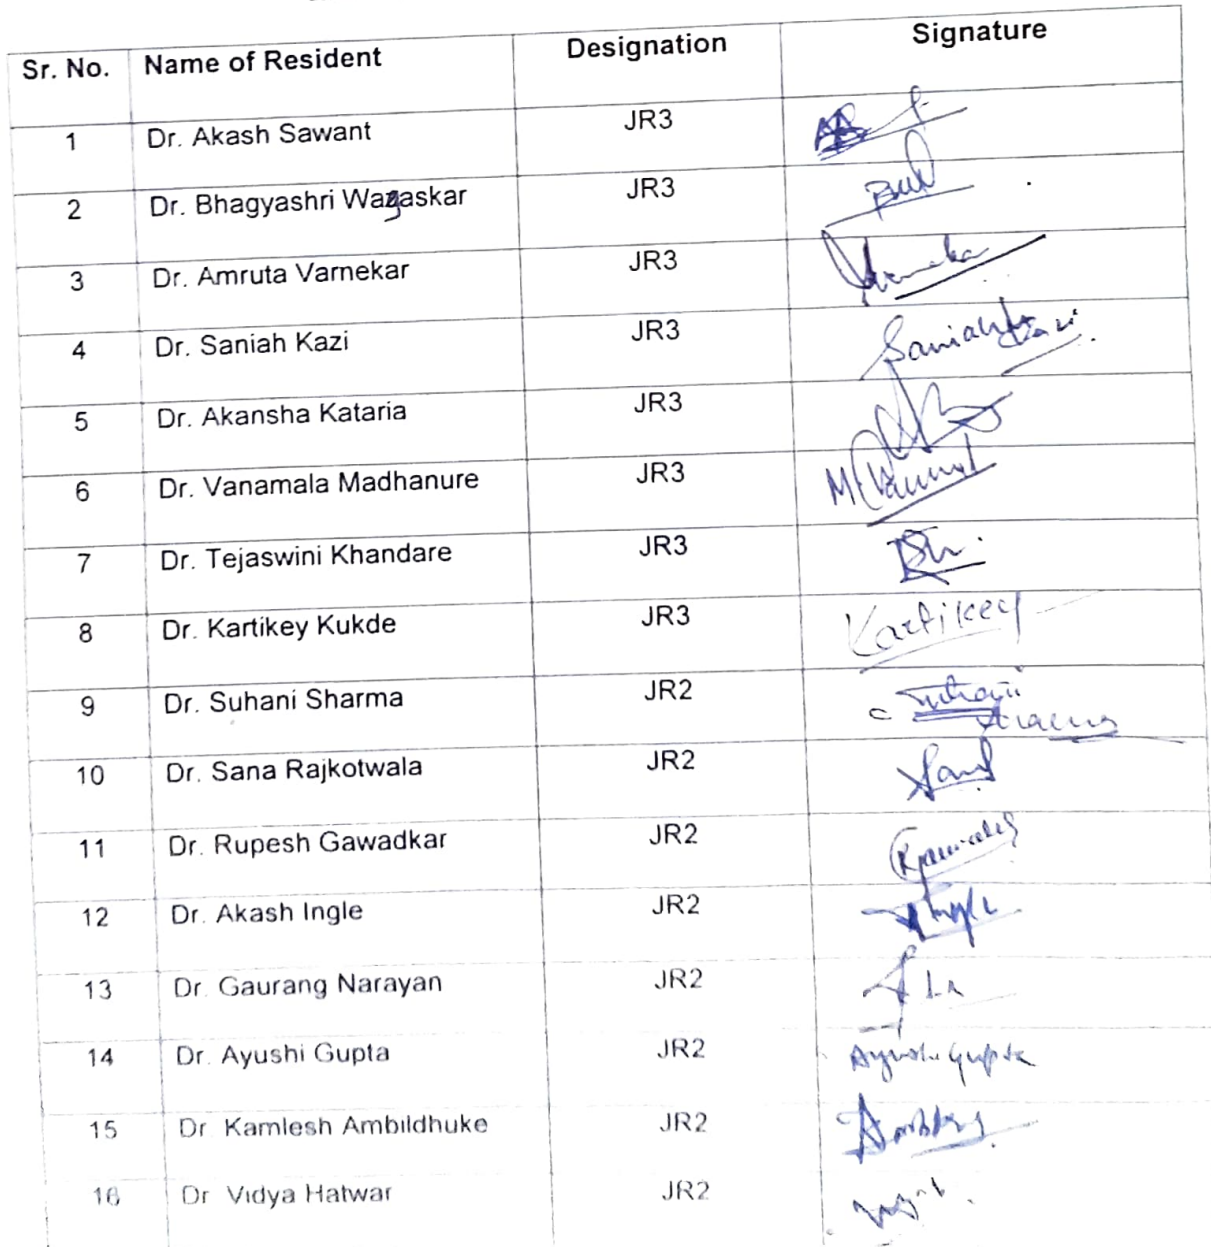 Sr. No. Name of Resident Designation Signature
1 Dr. Akash Sawant JR3
2 Dr. Bhagyashri Wagaskar JR3
3 Dr. Amruta Varnekar JR3
4 Dr. Saniah Kazi JR3 Saniah Kazi
5 Dr. Akansha Kataria JR3
6 Dr. Vanamala Madhanure JR3
7 Dr. Tejaswini Khandare JR3
8 Dr. Kartikey Kukde JR3 Kartikey
9 Dr. Suhani Sharma JR2
10 Dr. Sana Rajkotwala JR2
11 Dr. Rupesh Gawadkar JR2
12 Dr. Akash Ingle JR2
13 Dr. Gaurang Narayan JR2
14 Dr. Ayushi Gupta JR2 Ayushi Gupta
15 Dr. Kamlesh Ambildhuke JR2
16 Dr. Vidya Hatwar JR2